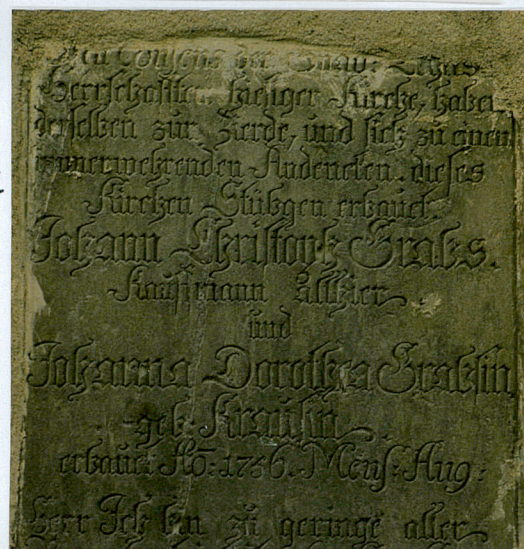 Consens der Gnäd: Lehns
Herrschafften hiesiger Kirche, haben
derselben zur Zierde, und sich zu einen
immerwehrenden Andencken, dieses
Kirchen Stübgen erbauet.
Johann Christoph Grabs.
Kauffmann allhier
und
Johanna Dorothea Grabsin
geb: Krausin
erbauet Aõ: 1756. Mens: Aug:
Herr Ich bin zu geringe aller